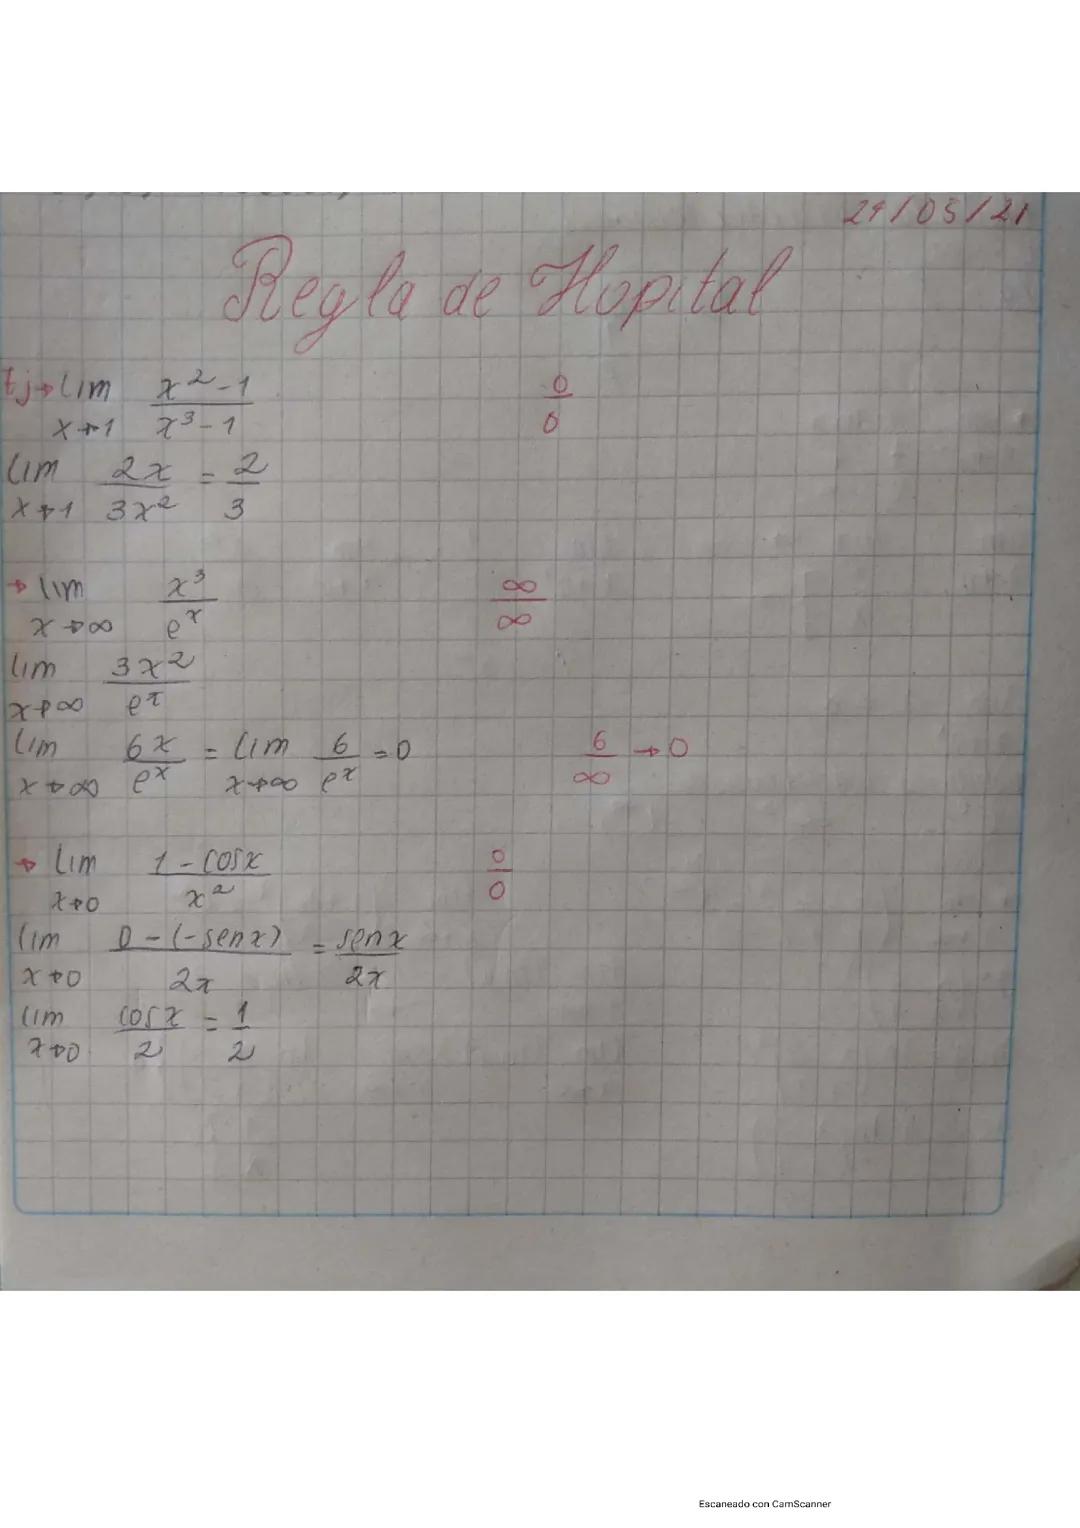 29/05/21
Regla de Hopital
Ej→ lim x→1 (x² - 1)/(x³ - 1) 0/0
lim x→1 2x/3x² = 2/3
→ lim x→∞ x³/eˣ ∞/∞
lim x→∞ 3x²/eˣ
lim x→∞ 6x/eˣ = lim x→∞ 6/eˣ = 0 6/∞ → 0
→ lim x→0 (1 - cosx)/x² 0/0
lim x→0 (0 - (-senx))/2x = senx/2x
lim x→0 cosx/2 = 1/2
Escaneado con CamScanner